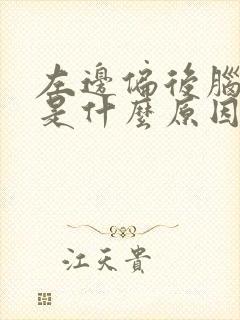 左邊偏後腦
是什麼原因
江天貴